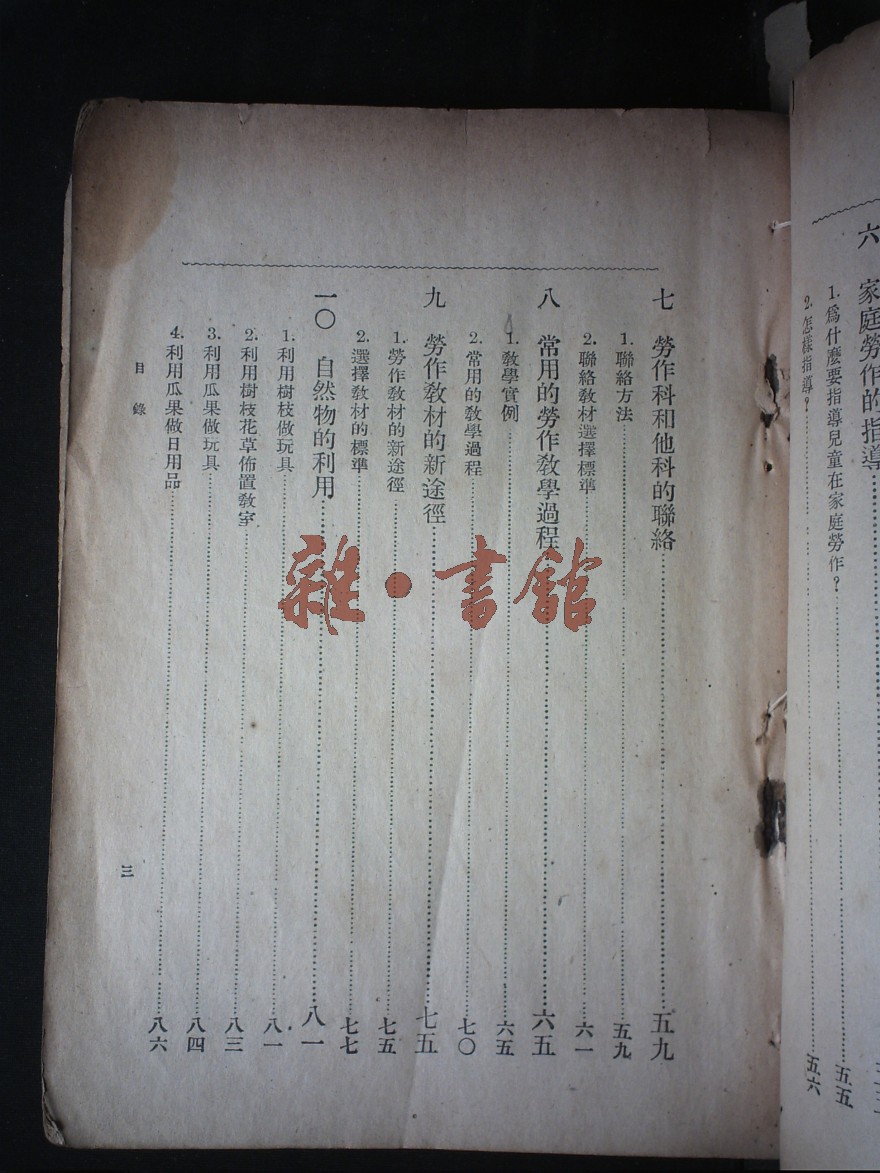 六 家庭勞作的指導
1. 爲什麼要指導兒童在家庭勞作？ 五五
2. 怎樣指導？ 五六
七 勞作科和他科的聯絡 五九
1. 聯絡方法 五九
2. 聯絡教材選擇標準 六一
八 常用的勞作教學過程 六五
1. 教學實例 六五
2. 常用的教學過程 七〇
九 勞作教材的新途徑 七五
1. 勞作教材的新途徑 七五
2. 選擇教材的標準 七七
一〇 自然物的利用 八一
1. 利用樹枝做玩具 八一
2. 利用樹枝花草佈置教室 八三
3. 利用瓜果做玩具 八四
4. 利用瓜果做日用品 八六
目錄
三
雜·書館